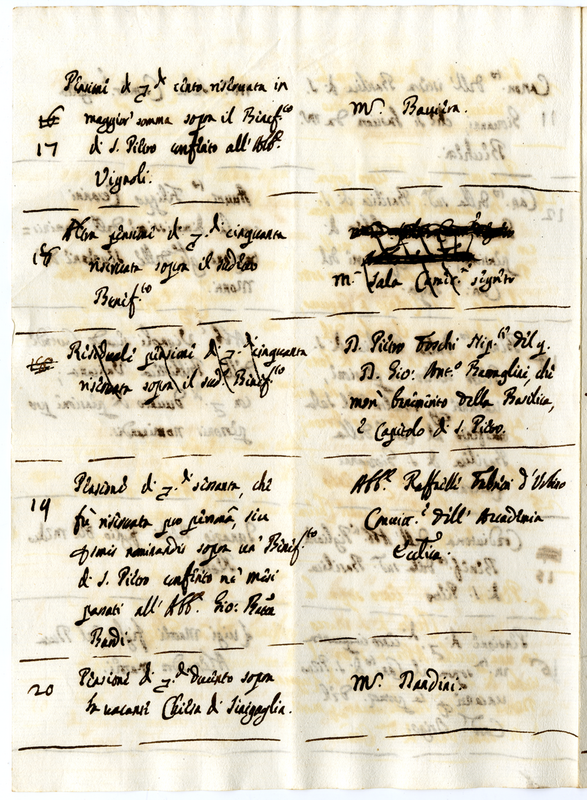 Pensione di z.di cento riservata in
16
maggior somma sopra il Benef.to
17
di S. Pietro conferito all' Abb.e
Vignoli.
M.r Baviera.
Altra pensione di z.di cinquanta
18
riservata sopra il sudetto
Benef.to
M.r Sala Camer.e segreto
Residuale pensione di z.di cinquanta
riservata sopra il sud.o Benef.to
D. Pietro Foschi Nip. del q.
D. Gio: Ant.o Ramaglini, che
morì beneficiato della Basilica,
e Capitolo di S. Pietro.
Pensione di z.di sessanta, che
19
fù riservata pro persona, seu
personis nominandis sopra un' Benef.to
di S. Pietro conferito ne' mesi
passati all' Abb.e Gio: Batta
Bandi.
Abb.e Raffaelle Fabrini d'Urbino
dell' Accademia
Eccl.ca.
Pensione di z.di Ducento sopra
20
la vacante Chiesa di Sinigaglia.
M.r Nardini.